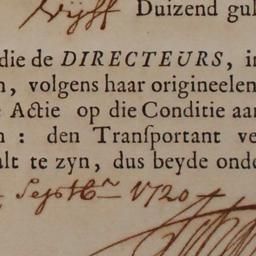 vijff Duizend gul
die de DIRECTEURS, in
n, volgens haar origineelen
Actie op die Conditie aan
n : den Transportant ve
alt te zyn, dus beyde onde
Septbr 1720